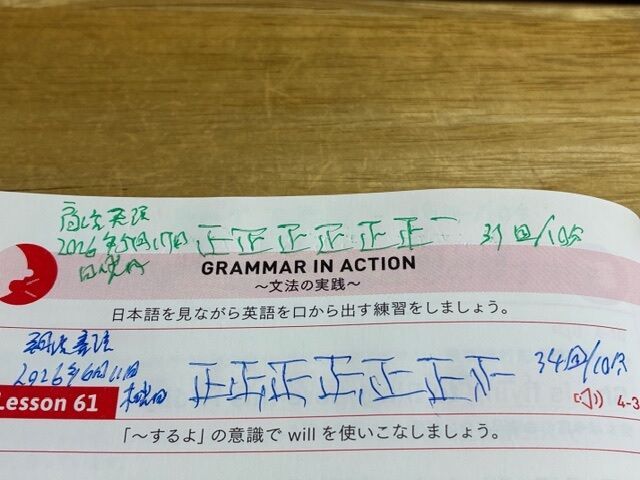 2026年5月17日 正正正正正正一 31回/10分
GRAMMAR IN ACTION
〜文法の実践〜
日本語を見ながら英語を口から出す練習をしましょう。
2026年6月11日
正正正正正正正 34回/10分
Lesson 61
4-3
「〜するよ」の意識で will を使いこなしましょう。